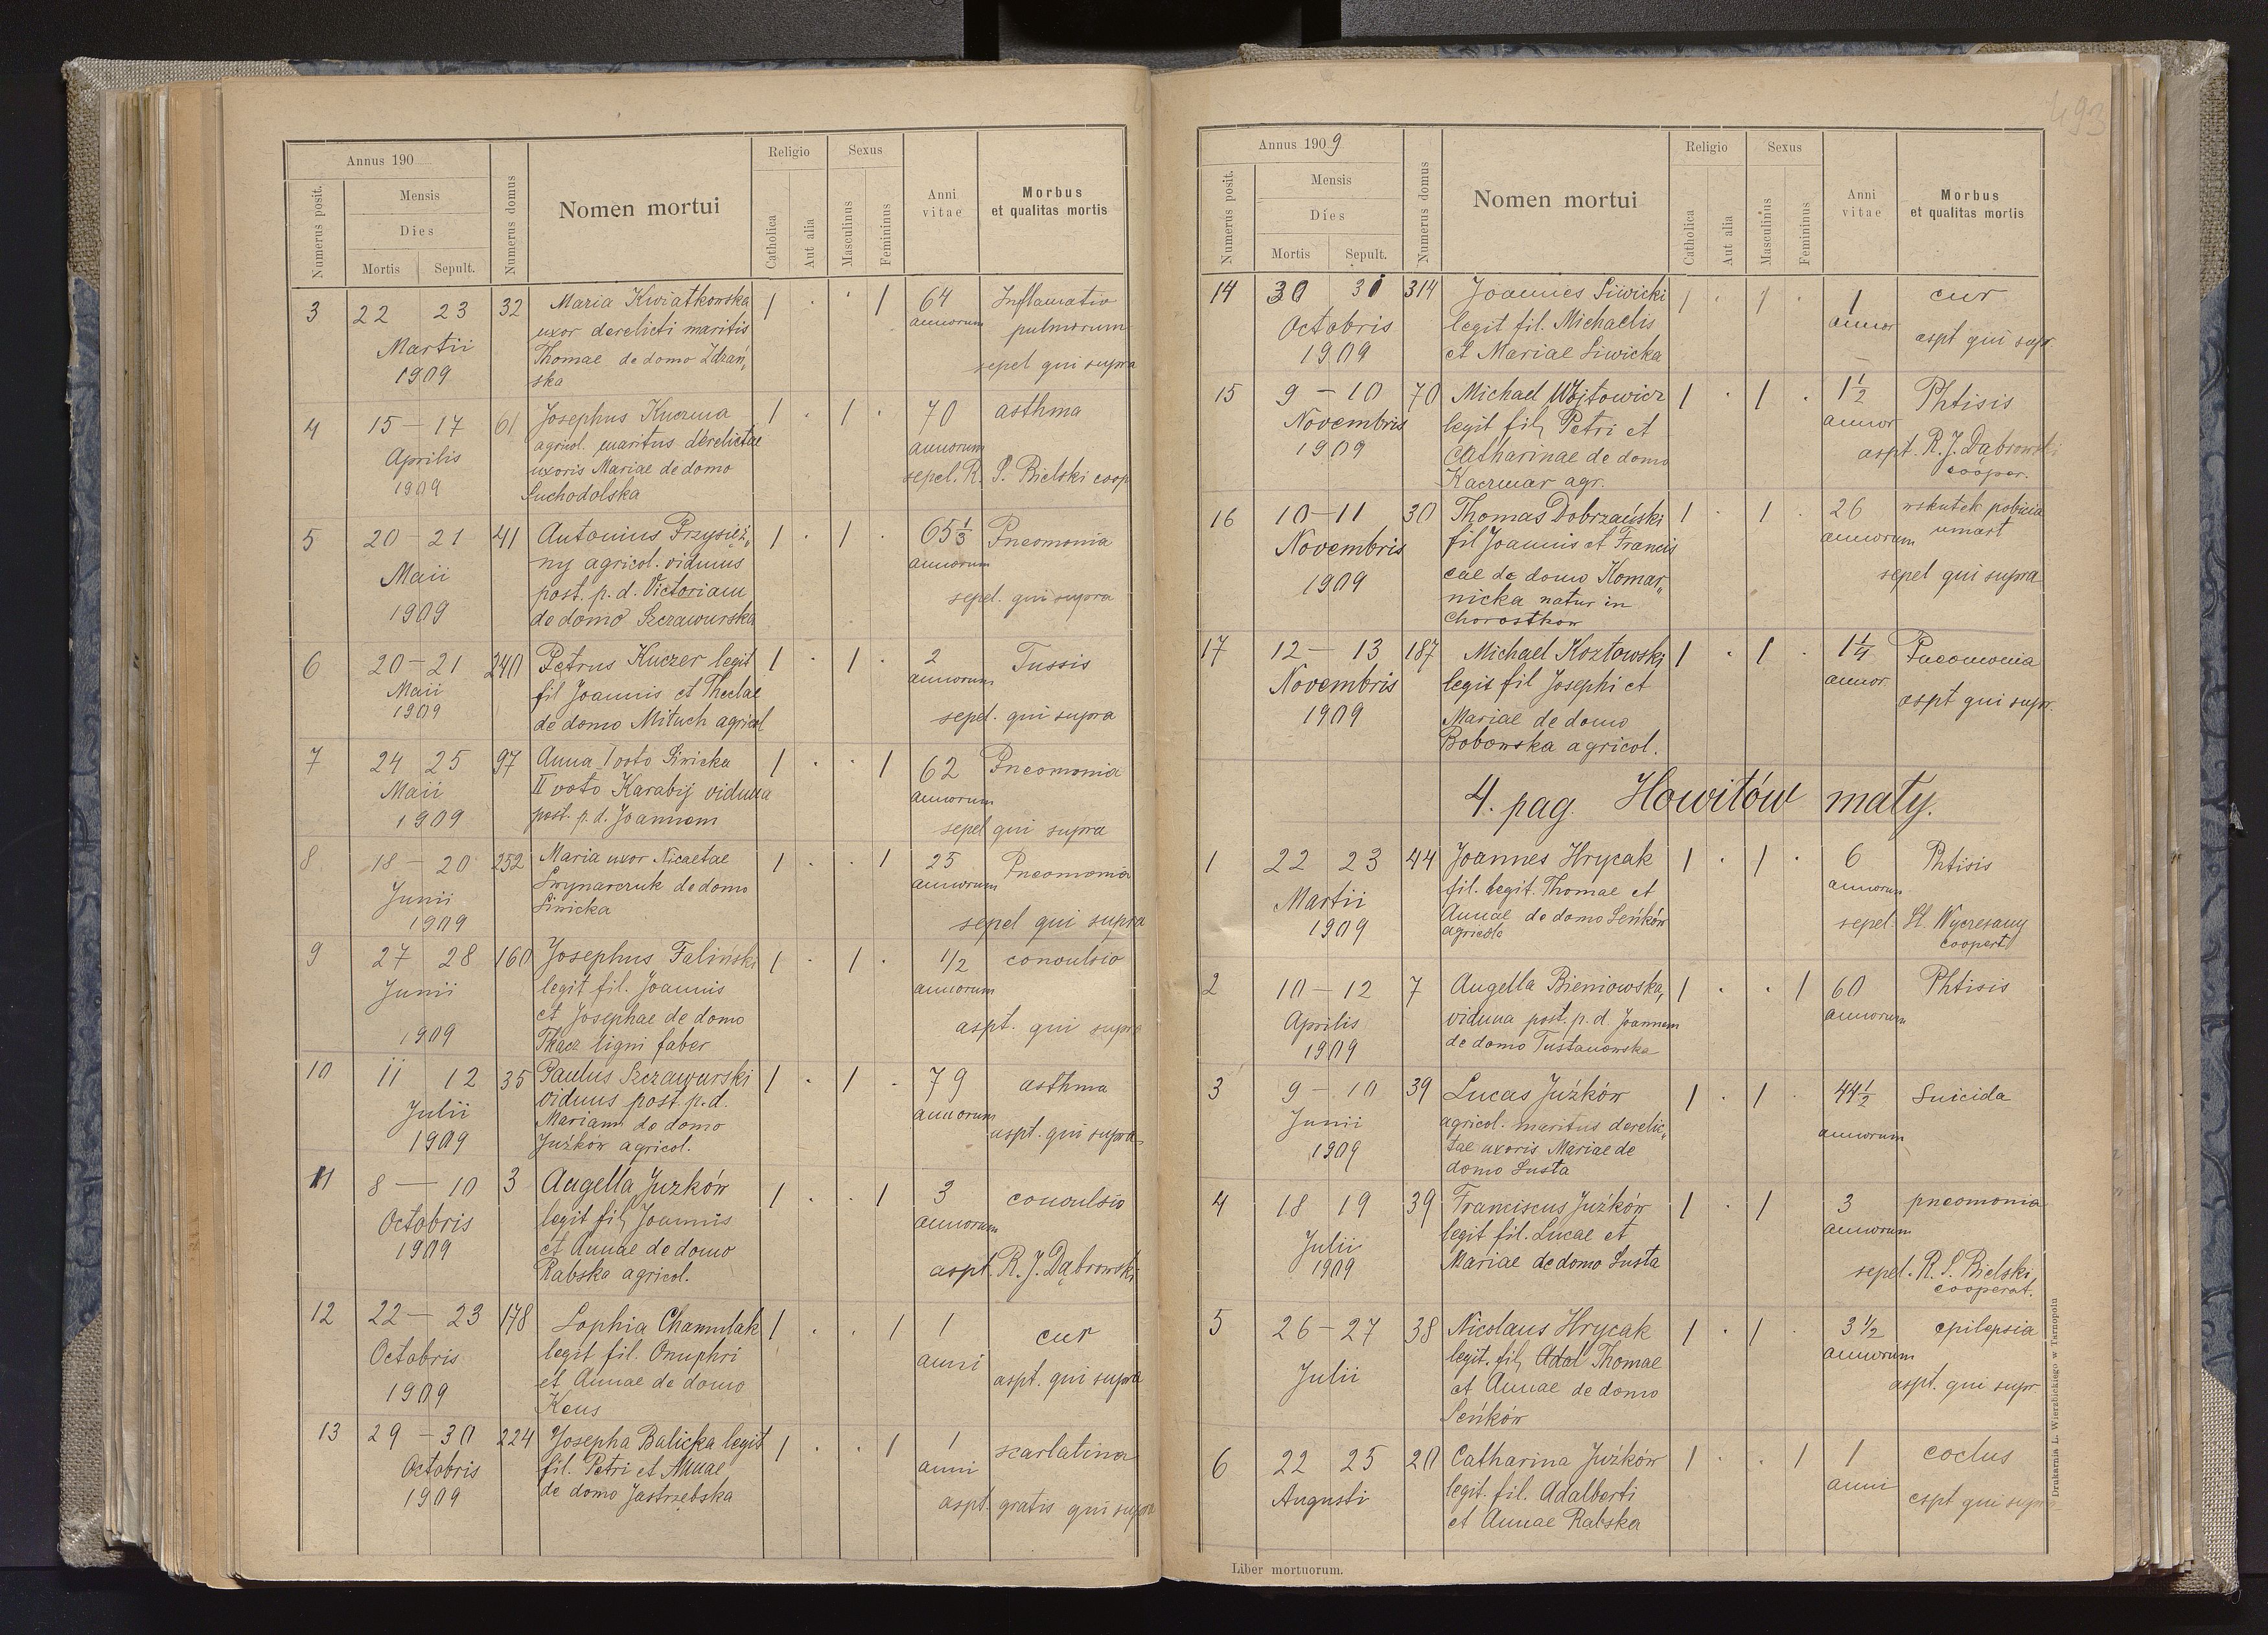 Annus 190
Numerus posit.
Mensis
Dies
Mortis Sepult.
Numerus domus
Nomen mortui
Religio
Catholica
Aut alia
Sexus
Masculinus
Femininus
Anni vitae
Morbus
et qualitas mortis
3 22 23 32 Maria Kwiatkowska 1 . . 1 64 Inflamatio
uxor derelicti maritis annorum pulmorum
Martii Thomae de domo Zdzań„ sepel qui supra
1909 ska
4 15 – 17 61 Josephus Kuczma 1 . 1 . 70 asthma
agricol. maritus derelictae annorum
Aprilis uxoris Mariae de domo sepel. R. S. Bielski coop
1909 Suchodolska
5 20 – 21 41 Antonius Przysięż„ 1 . 1 . 65 1/3 Pneomonia
ny agricol. viduus annorum
Maii post. p. d. Victoriam sepel. qui supra
1909 de domo Szczawurska
6 20 – 21 240 Petrus Kuczer legit 1 . 1 . 2 Tussis
Maii fil Joannis et Theclae annorum
1909 de domo Mituch agricol sepel. qui supra
7 24 25 97 Anna I voto Siwicka 1 . . 1 62 Pneomonia
Maii II voto Karabij vidua annorum
1909 post. p. d. Joannem sepel qui supra
8 18 – 20 252 Maria uxor Nicaetae 1 . . 1 25 Pneomonia
Junii Swynarczuk de domo annorum
1909 Siwicka sepel qui supra
9 27 28 160 Josephus Faliński 1 . 1 . 1/2 convulsio
Junii legit fil. Joannis annorum
et Josephae de domo aspt. qui supra
1909 Tkacz ligni faber
10 11 12 35 Paulus Szczawurski 1 . 1 . 79 asthma
viduus post. p. d. annorum
Julii Mariam de domo aspt. qui supra
1909 Juźków agricol.
11 8 — 10 3 Angella Juzków 1 . . 1 3 convulsio
Octobris legit fil Joannis annorum
1909 et Annae de domo aspt. R. J. Dąbrowski
Rabska agricol.
12 22 — 23 178 Sophia Chamulak 1 . . 1 1 cur
Octobris legit fil. Onuphri anni
1909 et Annae de domo aspt. qui supra
Keus
13 29 – 30 224 Josepha Balicka legit 1 . . 1 1 scarlatina
Octobris fil. Petri et Annae anni
1909 de domo Jastrzębska aspt. gratis qui supra
493
Annus 1909
Numerus posit.
Mensis
Dies
Mortis Sepult.
Numerus domus
Nomen mortui
Religio
Catholica
Aut alia
Sexus
Masculinus
Femininus
Anni vitae
Morbus
et qualitas mortis
14 30 31 314 Joannes Siwicki 1 . 1 . 1 cur
Octobris legit fil. Michaelis annor
1909 et Mariae Siwicka aspt qui supr
15 9 – 10 70 Michael Wojtowicz 1 . 1 . 1 1/2 Phtisis
Novembris legit fil Petri et annor
1909 Catharinae de domo aspt. R. J. Dąbrowski
Kaczmar agr. cooper.
16 10 – 11 30 Thomas Dobrzański 1 . 1 . 26 wskutek pobicia
Novembris fil Joannis et Francis annorum umarł
1909 cae de domo Komar„ sepel qui supra
nicka natus in
Chorostkow
17 12 – 13 187 Michael Kozłowski 1 . 1 . 1 1/4 Pneomonia
Novembris legit fil Josephi et annor.
1909 Mariae de domo aspt qui supr.
Bobowska agricol.
4. pag. Howiłów mały.
1 22 23 44 Joannes Hrycak 1 . 1 . 6 Phtisis
Martii fil. legit. Thomae et annorum
1909 Annae de domo Seńków sepel. St. Wyczesany
agricola coopert
2 10 – 12 7 Angella Bieniowska, 1 . . 1 60 Phtisis
Aprilis vidua post. p. d. Joannem annorum
1909 de domo Tustanowska
3 9 – 10 39 Lucas Juźków 1 . 1 . 44 1/2 Suicida
Junii agricol. maritus derelic„ annorum
1909 tae uxoris Mariae de
domo Susta
4 18 19 39 Franciscus Juźków 1 . 1 3 pneomonia
Julii legit fil. Lucae et annorum
1909 Mariae de domo Susta sepel. R. S. Bielski,
cooperat.
5 26 – 27 38 Nicolaus Hrycak 1 . 1 . 3 1/2 epilepsia
Julii legit. fil Adal Thomae annorum
et Annae de domo aspt. qui supr
Seńków
6 22 25 20 Catharina Juźków 1 . . 1 1 coctus
Augusti legit. fil. Adalberti anni
et Annae Rabska aspt qui supra
Liber mortuorum.
Drukarnia L. Wierzbickiego w Tarnopolu